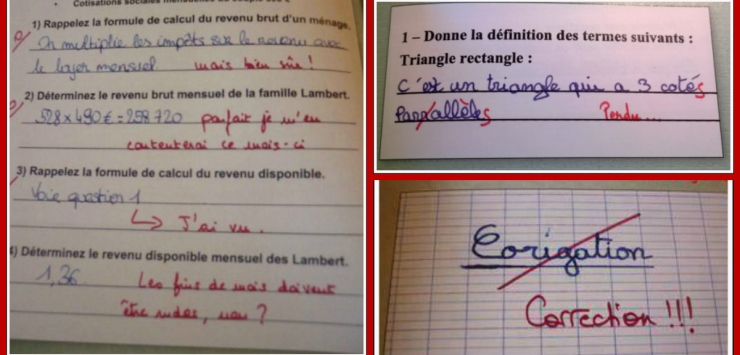 Cotisations sociales
1) Rappelez la formule de calcul du revenu brut d'un ménage.
On multiplie les impôts sur le revenu avec
le loyer mensuel. mais bien sûr !
2) Déterminez le revenu brut mensuel de la famille Lambert.
528 x 490 € = 258 720 parfait je m'en
contenterai ce mois-ci
3) Rappelez la formule de calcul du revenu disponible.
Voie question 1
J'ai vu.
4) Déterminez le revenu disponible mensuel des Lambert.
1,36 Les fins de mois doivent
être rudes, non ?
1 – Donne la définition des termes suivants :
Triangle rectangle :
C'est un triangle qui a 3 cotés
parrallèles Perdu...
Corigation
Correction !!!